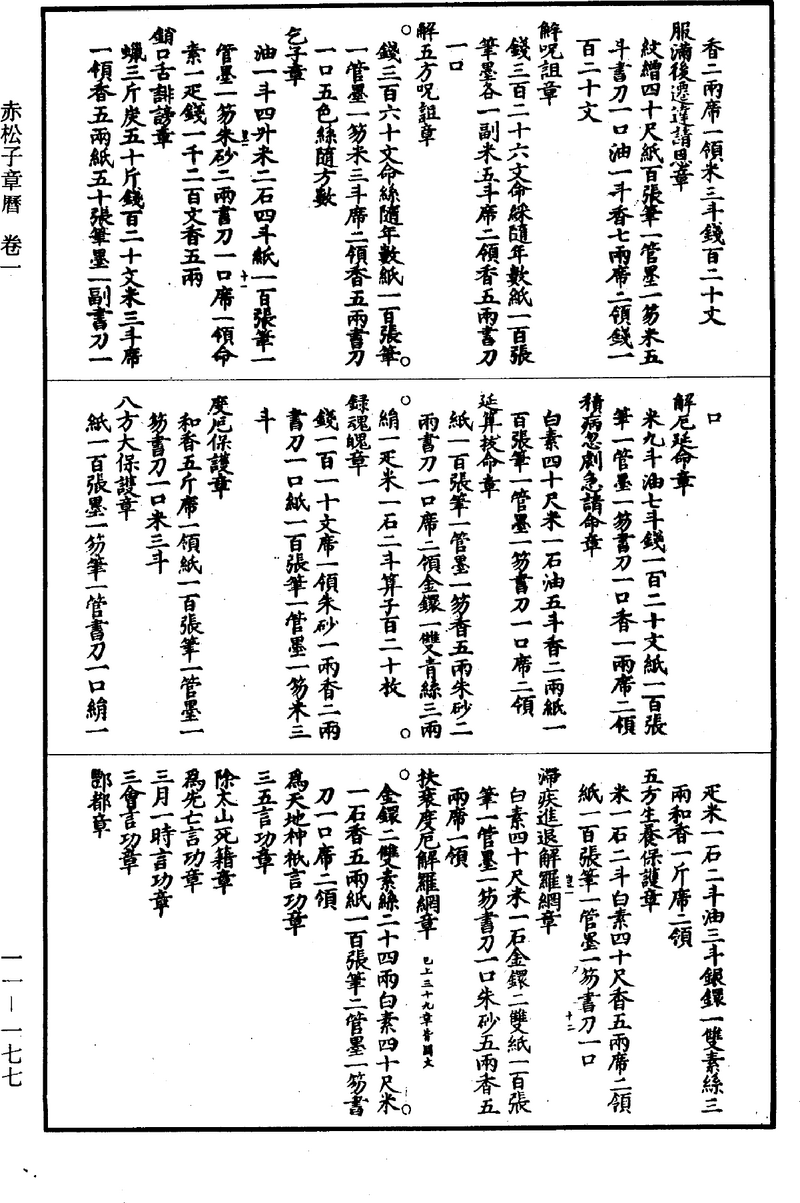 赤松子章曆 卷一
一一—一七七
香二兩席一領米三斗錢百二十文
服滿後遷達請恩章
紋繒四十尺紙百張筆一管墨一笏米五
斗書刀一口油一斗香七兩席二領錢一
百二十文
解呪詛章
錢三百二十六文命綵隨年數紙一百張
筆墨各一副米五斗席二領香五兩書刀
一口
解五方呪詛章
錢三百六十文命絲隨年數紙一百張筆
一管墨一笏米三斗席二領香五兩書刀
一口五色絲隨方數
乞子章
油一斗四升米二石四斗紙一百張筆一
管墨一笏朱砂二兩書刀一口席一領命
素一疋錢一千二百文香五兩
銷口舌誹謗章
蠟三斤炭五十斤錢百二十文米三斗席
一領香五兩紙五十張筆墨一副書刀一
口
解厄延命章
米九斗油七斗錢一百二十文紙一百張
筆一管墨一笏書刀一口香一兩席二領
積病忽劇急請命章
白素四十尺米一石油五斗香二兩紙一
百張筆一管墨一笏書刀一口席二領
延算拔命章
紙一百張筆一管墨一笏香五兩朱砂二
兩書刀一口席二領金鐶一雙青絲三兩
絹一疋米一石二斗算子百二十枚
録魂魄章
錢一百一十文席一領朱砂一兩香二兩
書刀一口紙一百張筆一管墨一笏米三
斗
度厄保護章
和香五斤席一領紙一百張筆一管墨一
笏書刀一口米三斗
八方大保護章
紙一百張墨一笏筆一管書刀一口絹一
疋米一石二斗油三斗銀鐶一雙素絲三
兩和香一斤席二領
五方生養保護章
米一石二斗白素四十尺香五兩席二領
紙一百張筆一管墨一笏書刀一口
滯疾進退解羅網章
白素四十尺米一石金鐶二雙紙一百張
筆一管墨一笏書刀一口朱砂五兩香五
兩席一領
扶衰度厄解羅網章 已上三十九章皆闕文
金鐶二雙素絲二十四兩白素四十尺米
一石香五兩紙一百張筆二管墨一笏書
刀一口席二領
爲天地神祇言功章
三五言功章
除太山死籍章
爲先亡言功章
三月一時言功章
三會言功章
酆都章